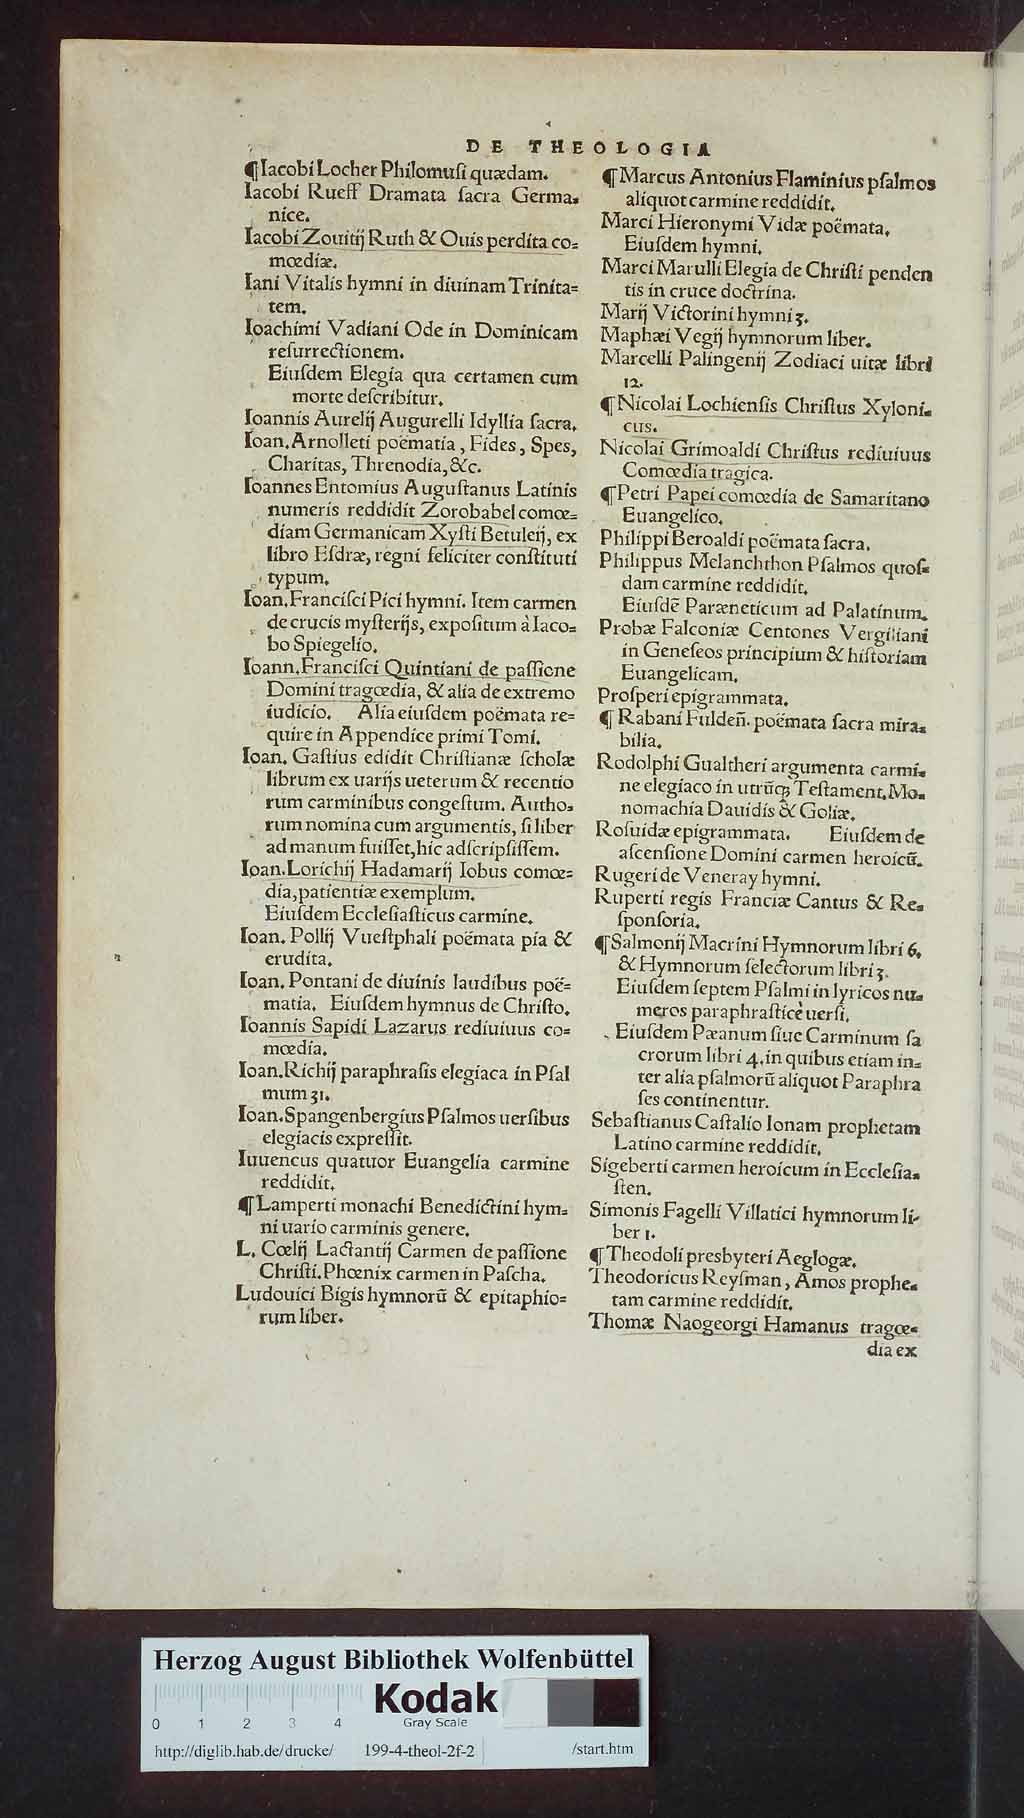 DE THEOLOGIA
¶Iacobi Locher Philomuſi quædam.
Iacobi Rueff Dramata ſacra Germa-
nice.
Iacobi Zouitij Ruth & Ouis perdita co-
mœdiæ.
Iani Vitalis hymni in diuinam Trinita-
tem.
Ioachimi Vadiani Ode in Dominicam
reſurrectionem.
Eiuſdem Elegia qua certamen cum
morte deſcribitur.
Ioannis Aurelij Augurelli Idyllia ſacra.
Ioan. Arnolleti poëmatia, Fides, Spes,
Charitas, Threnodia, &c.
Ioannes Entomius Auguſtanus Latinis
numeris reddidit Zorobabel comœ-
diam Germanicam Xyſti Betuleij, ex
libro Eſdræ, regni feliciter conſtituti
typum.
Ioan. Franciſci Pici hymni. Item carmen
de crucis myſterijs, expoſitum à Iaco-
bo Spiegelio.
Ioann. Franciſci Quintiani de paſſione
Domini tragœdia, & alia de extremo
iudicio. Alia eiuſdem poëmata re-
quire in Appendice primi Tomi.
Ioan. Gaſtius edidit Chriſtianæ ſcholæ
librum ex uarijs ueterum & recentio
rum carminibus congeſtum. Autho-
rum nomina cum argumentis, ſi liber
ad manum fuiſſet, hic adſcripſiſſem.
Ioan. Lorichij Hadamarij Iobus comœ-
dia, patientiæ exemplum.
Eiuſdem Eccleſiaſticus carmine.
Ioan. Pollij Vueſtphali poëmata pia &
erudita.
Ioan. Pontani de diuinis laudibus poë-
matia. Eiuſdem hymnus de Chriſto.
Ioannis Sapidi Lazarus rediuiuus co-
mœdia.
Ioan. Richij paraphraſis elegiaca in Pſal
mum 31.
Ioan. Spangenbergius Pſalmos uerſibus
elegiacis expreſſit.
Iuuencus quatuor Euangelia carmine
reddidit.
¶Lamperti monachi Benedictini hym-
ni uario carminis genere.
L. Cœlij Lactantij Carmen de paſſione
Chriſti. Phœnix carmen in Paſcha.
Ludouici Bigis hymnorũ & epitaphio-
rum liber.
¶Marcus Antonius Flaminius pſalmos
aliquot carmine reddidit.
Marci Hieronymi Vidæ poëmata.
Eiuſdem hymni.
Marci Marulli Elegia de Chriſti penden
tis in cruce doctrina.
Marij Victorini hymni 3.
Maphæi Vegij hymnorum liber.
Marcelli Palingenij Zodiaci uitæ libri
12.
¶Nicolai Lochienſis Chriſtus Xyloni-
cus.
Nicolai Grimoaldi Chriſtus rediuiuus
Comœdia tragica.
¶Petri Papei comœdia de Samaritano
Euangelico.
Philippi Beroaldi poëmata ſacra.
Philippus Melanchthon Pſalmos quoſ-
dam carmine reddidit.
Eiuſdẽ Paræneticum ad Palatinum.
Probæ Falconiæ Centones Vergiliani
in Geneſeos principium & hiſtoriam
Euangelicam.
Proſperi epigrammata.
¶ Rabani Fuldeñ. poëmata ſacra mira-
bilia.
Rodolphi Gualtheri argumenta carmi-
ne elegiaco in utrũq; Teſtament. Mo-
nomachia Dauidis & Goliæ.
Roſuidæ epigrammata. Eiuſdem de
aſcenſione Domini carmen heroicũ.
Rugeri de Veneray hymni.
Ruperti regis Franciæ Cantus & Re-
ſponſoria.
¶Salmonij Macrini Hymnorum libri 6.
& Hymnorum ſelectorum libri 3.
Eiuſdem ſeptem Pſalmi in lyricos nu-
meros paraphraſticè uerſi.
Eiuſdem Pæanum ſiue Carminum ſa
crorum libri 4. in quibus etiam in-
ter alia pſalmorũ aliquot Paraphra
ſes continentur.
Sebaſtianus Caſtalio Ionam prophetam
Latino carmine reddidit.
Sigeberti carmen heroicum in Eccleſia-
ſten.
Simonis Fagelli Villatici hymnorum li-
ber 1.
¶Theodoli presbyteri Aeglogæ.
Theodoricus Reyſman, Amos prophe-
tam carmine reddidit.
Thomæ Naogeorgi Hamanus tragœ-
dia ex
Herzog August Bibliothek Wolfenbüttel
0 1 2 3 4
Kodak
Gray Scale
http://diglib.hab.de/drucke/ 199-4-theol-2f-2 /start.htm